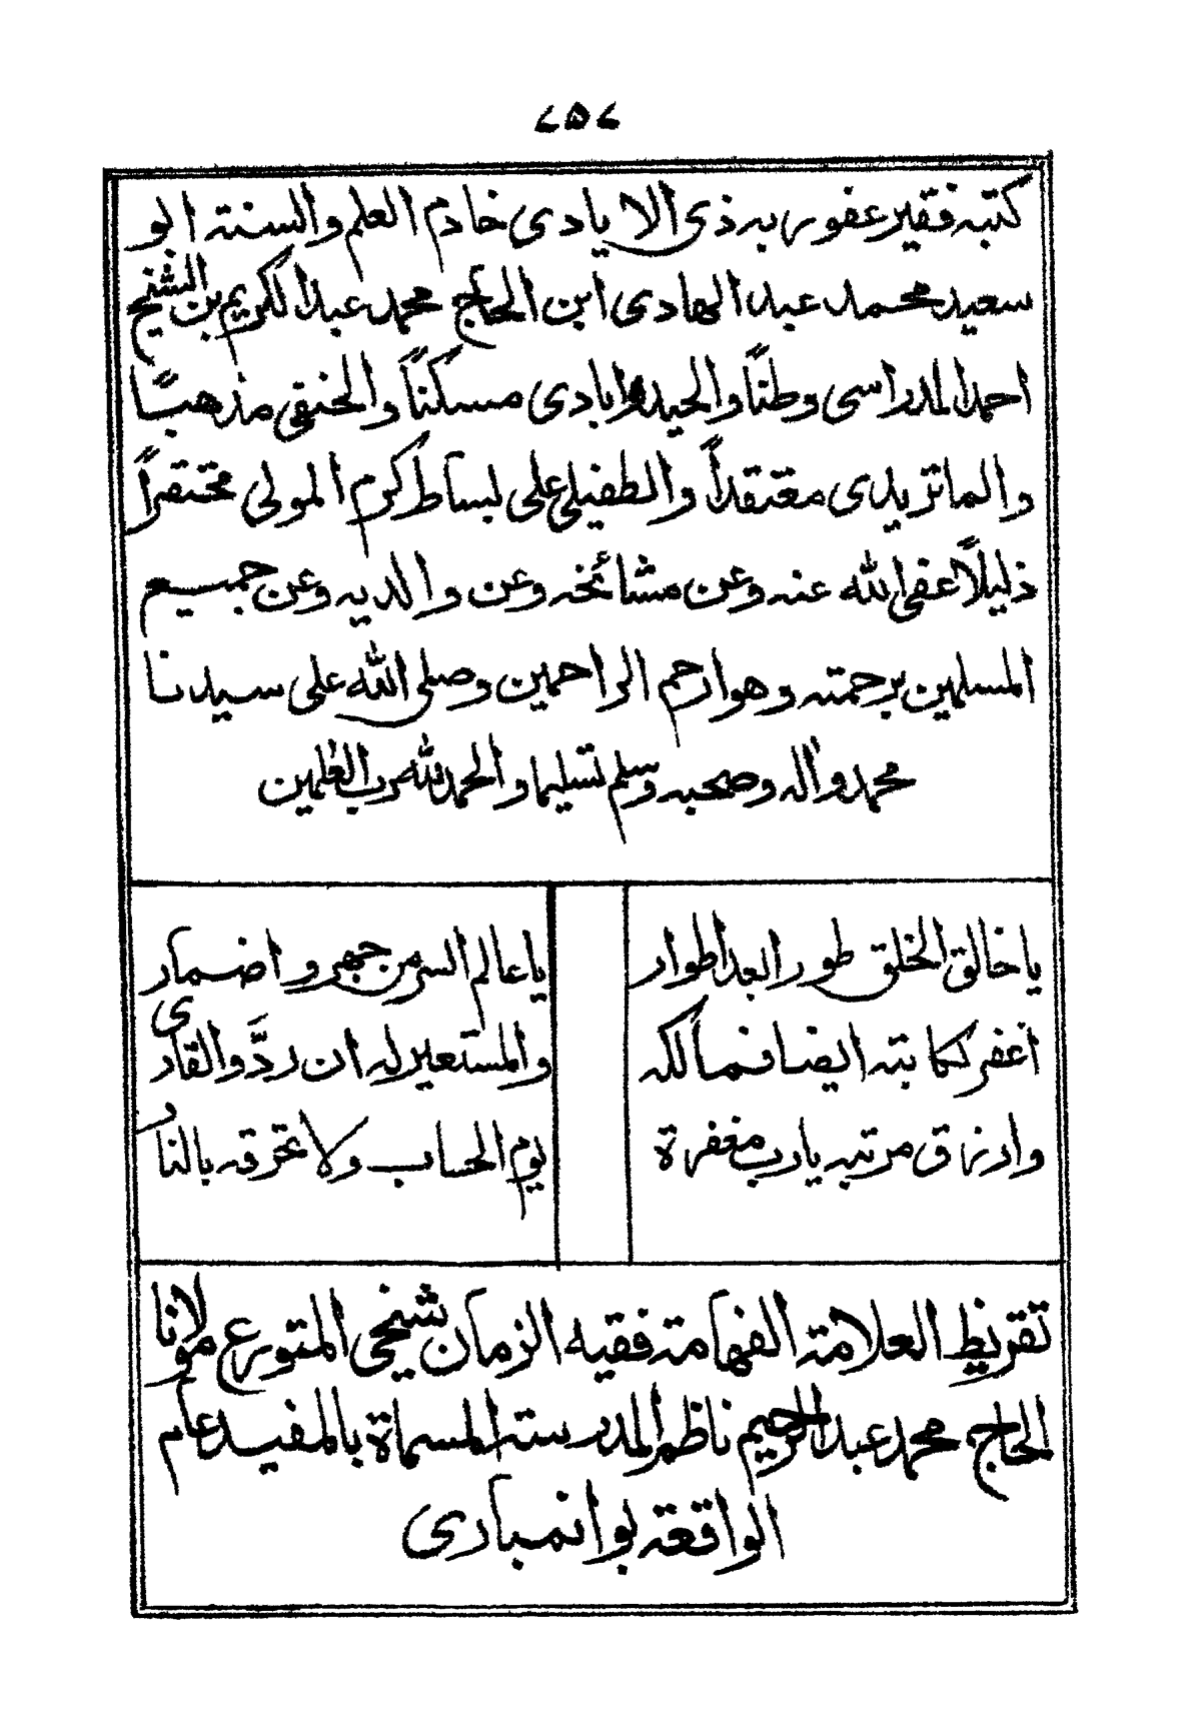 ٤٥٤
كتبه فقير عفو ربه ذى الايادى خادم العلم والسنة ابو
سعيد محمد عبد الهادى ابن الحاج محمد عبد الكريم بن الشيخ
احمد المدراسى وطنًا والحيدرابادى مسكنًا والحنفى مذهبًا
والماتريدى معتقدًا والطفيلى على بساط كرم المولى محتقرًا
ذليلًا عفى الله عنه وعن مشائخه وعن والديه وعن جميع
المسلمين برحمته وهو ارحم الراحمين وصلى الله على سيدنا
محمد واله وصحبه وسلم تسليما والحمد لله رب العٰلمين
يا خالق الخلق طورا بعد اطوار يا عالم السر من جهر واضمار
اغفر لكاتبه ايضا فمالكه والمستعير له ان ردَّ والقارى
وارزق مرتبه يارب مغفرة يوم الحساب ولا تحرقه بالنار
تقريظ العلامة الفهامة فقيه الزمان شيخى المتورع مولانا
الحاج محمد عبد الرحيم ناظم المدرسة المسماة بالمفيد عام
الواقعة بوانمبارى